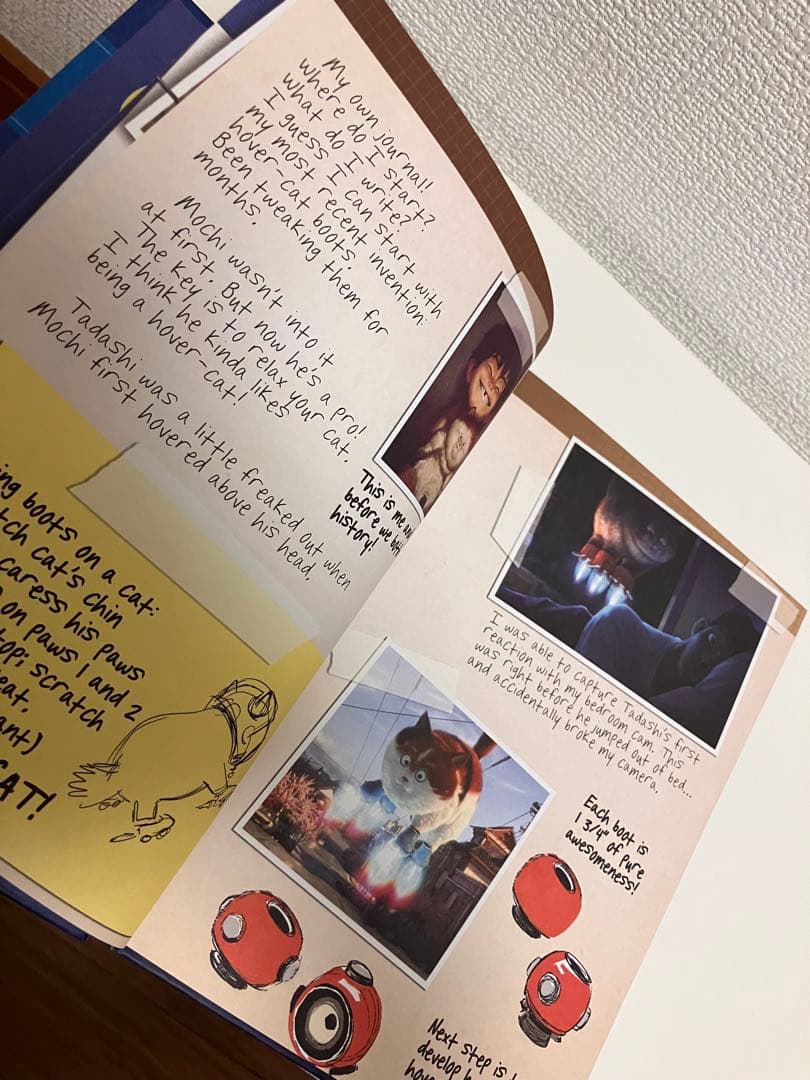 My own journal!
where do I start?
what do I write?
I guess I can start with
my most recent invention:
hover-cat boots.
Been tweaking them for
months.
Mochi wasn't into it
at first. But now he's a pro!
The key is to relax your cat.
I think he kinda likes
being a hover-cat!
Tadashi was a little freaked out when
Mochi first hovered above his head.
This is me
before we
history!
boots on a cat:
cat's chin
caress his paws
on paws 1 and 2
scratch
I was able to capture Tadashi's first
reaction with my bedroom cam. This
was right before he jumped out of bed...
and accidentally broke my camera.
Each boot is
1 3/4" of pure
awesomeness!
Next step is
develop